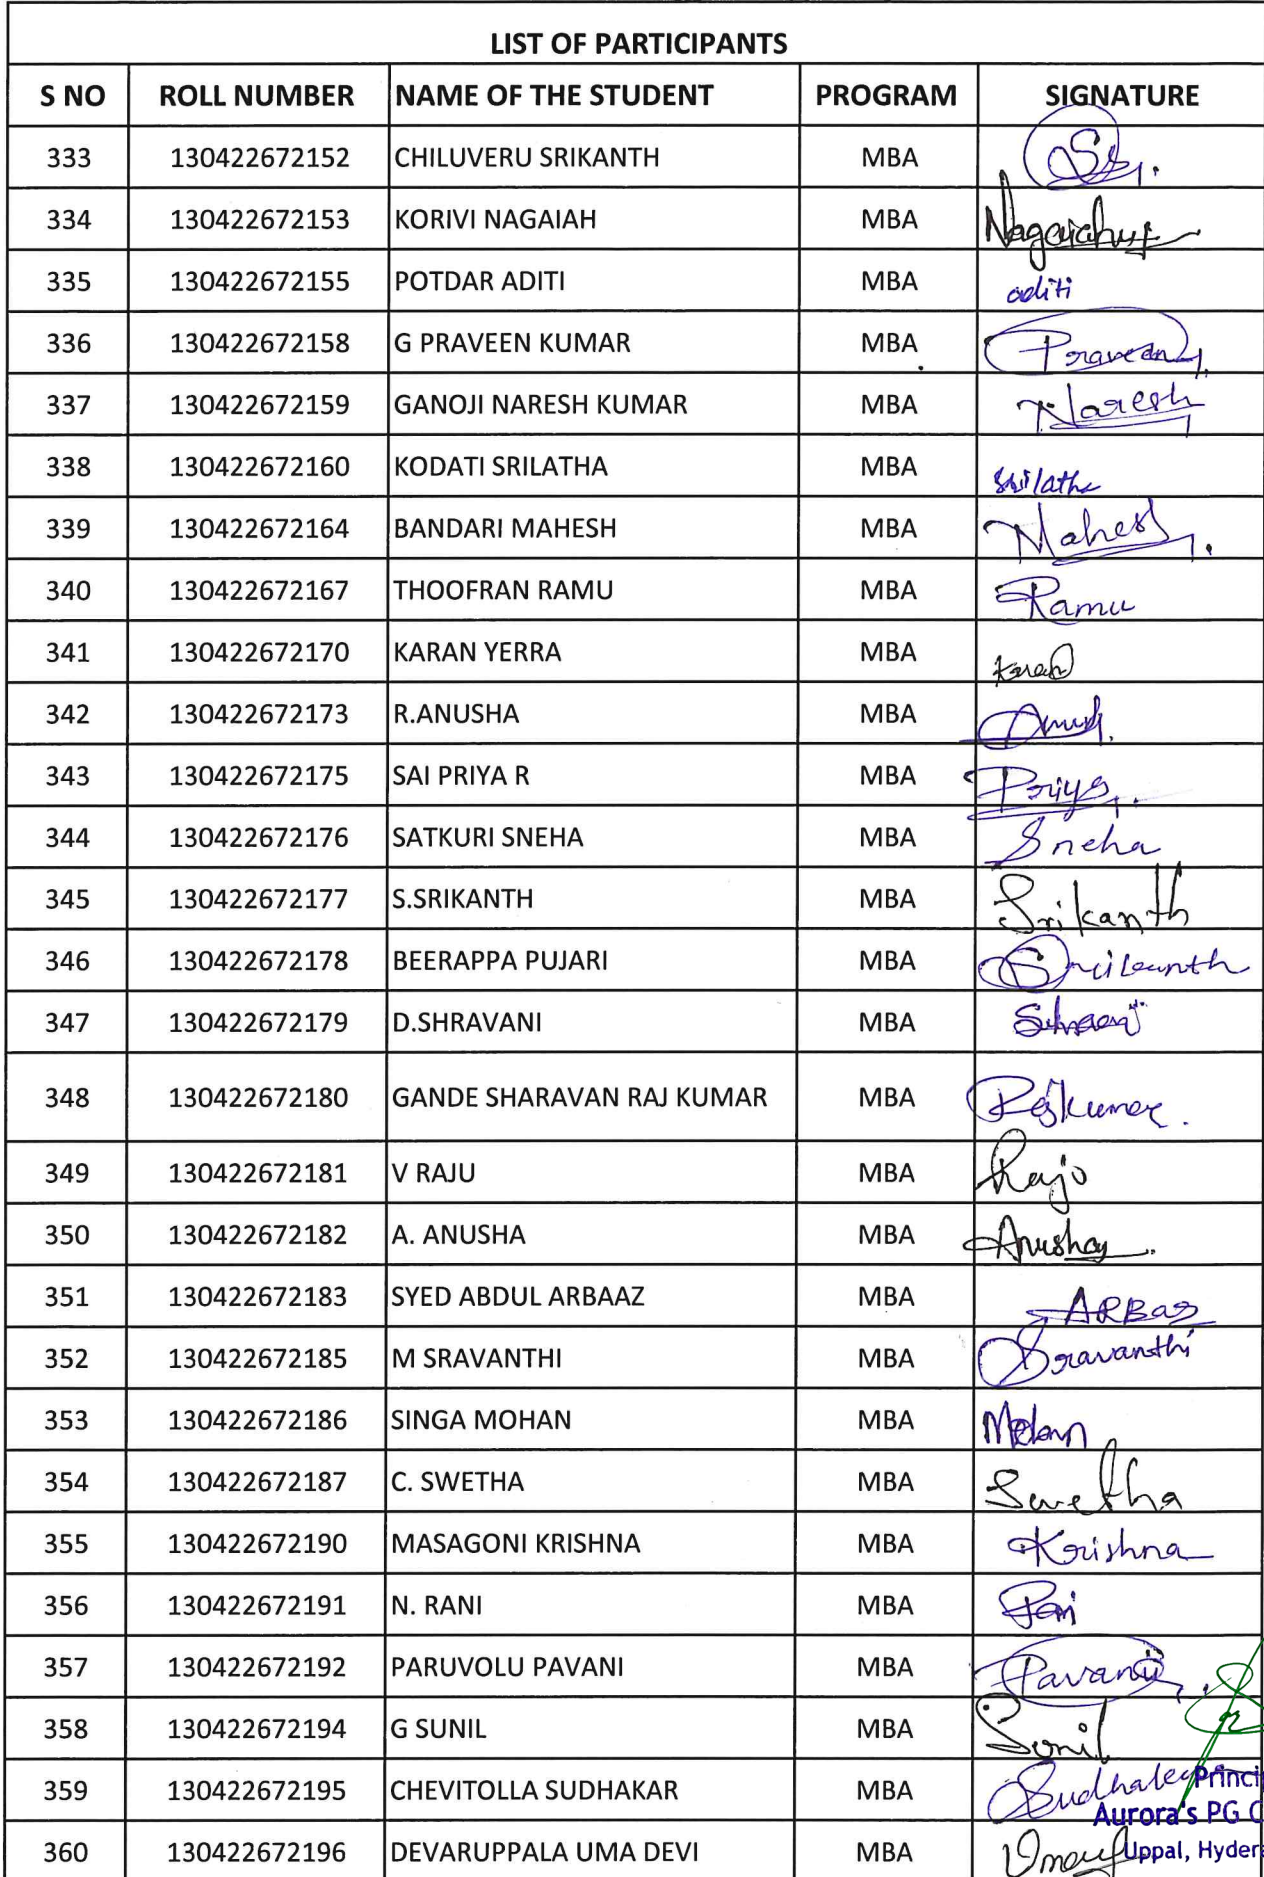 LIST OF PARTICIPANTS
S NO ROLL NUMBER NAME OF THE STUDENT PROGRAM SIGNATURE
333 130422672152 CHILUVERU SRIKANTH MBA
334 130422672153 KORIVI NAGAIAH MBA Nagaiah
335 130422672155 POTDAR ADITI MBA aditi
336 130422672158 G PRAVEEN KUMAR MBA Praveen
337 130422672159 GANOJI NARESH KUMAR MBA Naresh
338 130422672160 KODATI SRILATHA MBA Srilatha
339 130422672164 BANDARI MAHESH MBA Mahesh
340 130422672167 THOOFRAN RAMU MBA Ramu
341 130422672170 KARAN YERRA MBA Karan
342 130422672173 R.ANUSHA MBA
343 130422672175 SAI PRIYA R MBA Priya
344 130422672176 SATKURI SNEHA MBA Sneha
345 130422672177 S.SRIKANTH MBA Srikanth
346 130422672178 BEERAPPA PUJARI MBA
347 130422672179 D.SHRAVANI MBA
348 130422672180 GANDE SHARAVAN RAJ KUMAR MBA Rajkumar.
349 130422672181 V RAJU MBA Raju
350 130422672182 A. ANUSHA MBA Anusha
351 130422672183 SYED ABDUL ARBAAZ MBA ARBaz
352 130422672185 M SRAVANTHI MBA Sravanthi
353 130422672186 SINGA MOHAN MBA Mohan
354 130422672187 C. SWETHA MBA Swetha
355 130422672190 MASAGONI KRISHNA MBA Krishna
356 130422672191 N. RANI MBA Rani
357 130422672192 PARUVOLU PAVANI MBA Pavani
358 130422672194 G SUNIL MBA Sunil
359 130422672195 CHEVITOLLA SUDHAKAR MBA Sudhakar
Princi
Aurora's PG C
360 130422672196 DEVARUPPALA UMA DEVI MBA
Uppal, Hyder